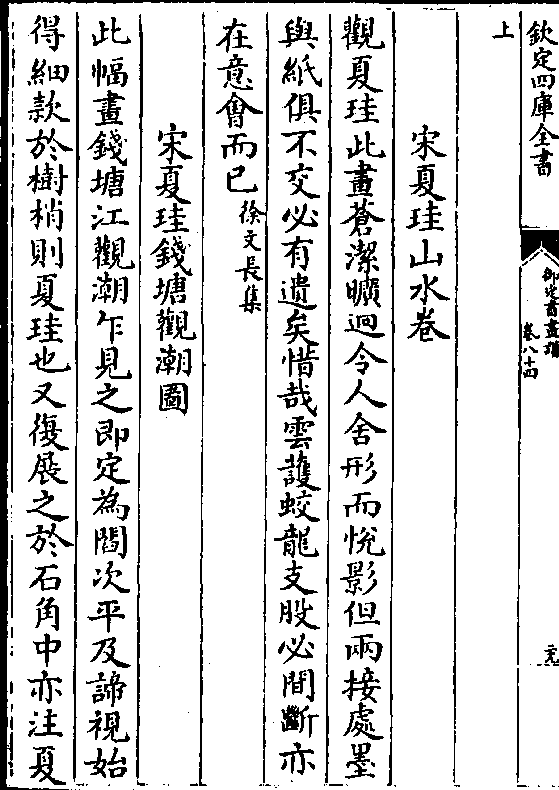 欽定四庫全書
御定書畫譜
卷八十四
上
宋夏珪山水卷
觀夏珪此畫蒼潔曠迥令人舍形而悅影但兩接處墨
與紙俱不交必有遺矣惜哉雲護蛟龍支股必間斷亦
在意會而已徐文長集
宋夏珪錢塘觀潮圖
此幅畫錢塘江觀潮乍見之即定為閻次平及諦視始
得細款於樹梢則夏珪也又復展之於石角中亦注夏